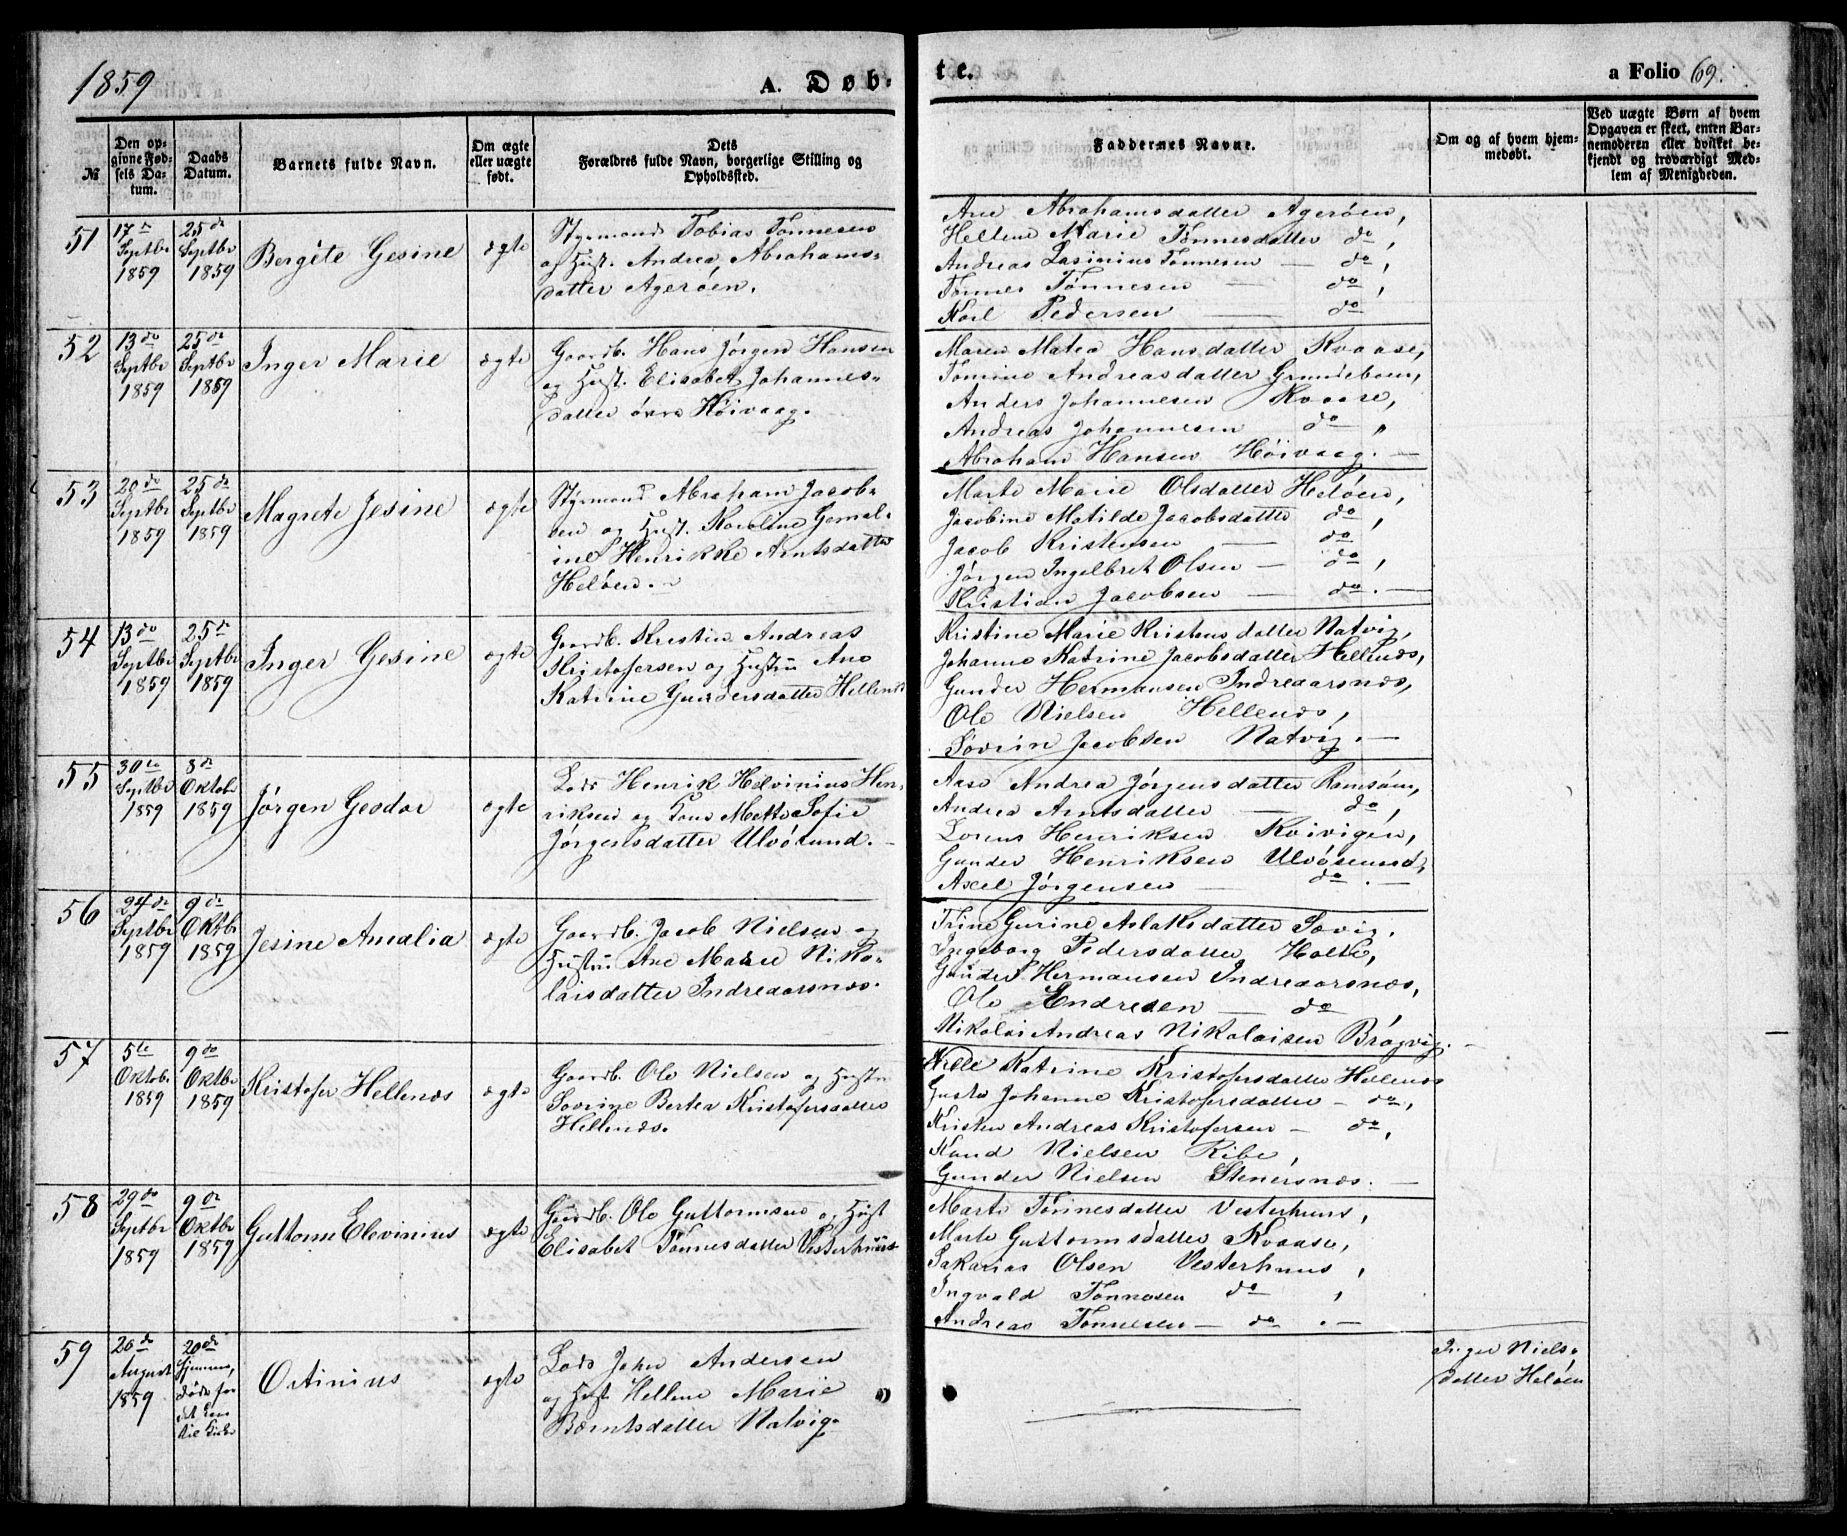 1859
A. Døb-
te.
a Folio 69.
№
Den op-
givne Fød-
sels Da-
tum.
Daabs
Datum.
Barnets fulde Navn.
Om ægte
eller uægte
født.
Dets
Forældres fulde Navn, borgerlige Stilling og
Opholdssted.
Faddernes Navne.
Om og af hvem hjem-
medøbt.
Ved uægte Børn af hvem
Opgaven er skeet, enten Bar-
nemoderen eller hvilket be-
kjendt og troværdigt Med-
lem af Menigheden.
51
17de
Septbr
1859
25de
Septbr
1859
Bergete Gesine
ægte
Styrmand Tobias Tønnesen
og Hust. Andrea Abrahams-
datter Agerøen.
Ane Abrahamsdatter Agerøen,
Hellene Marie Tønnesdatter do,
Andreas Zasinius Tønnesen — do,
Tønnes Tønnesen — do,
Karl Pedersen — do
52
13de
Septbr
1859
25de
Septbr
1859
Inger Marie
ægte
Gaardb. Hans Jørgen Hansen
og Hust. Elisabet Johannes-
datter øvre Høivaag.
Maren Matea Hansdatter Kvaase,
Tomine Andreasdatter Grundeboen,
Anders Johannesen Kvaase,
Andreas Johannesen do "
Abraham Hansen Høivaag. —
53
20de
Septbr
1859
25de
Septbr
1859
Magrete Jesine
ægte
Styrmand Abraham Jacob-
sen og Hust. Karoline Gemal-
ine Henrikke Arntsdatter
Heløen. —
Marte Marie Olsdatter Heløen,
Jacobine Matilde Jacobsdatter do,
Jacob Kristensen — do
Jørgen Ingelbret Olsen — do,
Kristian Jacobsen — do. —
54
13de
Septbr
1859
25de
Septbr
1859
Inger Gesine
ægte
Gaardb. Kristen Andreas
Kristofersen og Hustru Ane
Katrine Gundersdatter Hellenes
Kristine Marie Kristensdatter Natvig,
Johanne Katrine Jacobsdatter Hellenes,
Gunder Hermansen Indreaarsnes,
Ole Nielsen Hellenes,
Sovrin Jacobsen Natvig. —
55
30te
Septbr
1859
8de
Oktobr
1859
Jørgen Gesdoe
ægte
Lods Henrik Helvinius Hen-
riksen og Kone Mette Sofie
Jørgensdatter Ulvøsund. —
Aase Andrea Jørgensdatter Ramsøen,
Andrea Arntsdatter — do,
Lorens Henriksen Kvivigen,
Gunder Henriksen Ulvøsund,
Axel Jørgensen — do. —
56
24de
Septbr
1859
9de
Oktbr
1859
Jesine Amalia
ægte
Gaardb. Jacob Nielsen og
Hustru Ane Marie Niko-
laisdatter Indreaarsnes.
Trine Gurine Aslaksdatter Søvig,
Ingeborg Pedersdatter Holte,
Gunder Hermansen Indreaarsnes,
Ole Endresen — do,
Nikolai Andreas Nikolaisen Brøgvig. —
57
5te
Oktobr
1859
9de
Oktbr
1859
Kristofer Hellenes
ægte
Gaardb. Ole Nielsen og Hustru
Sovrine Bertea Kristofersdatter
Hellenes.
Nille Katrine Kristofersdatter Hellenes
Gusta Johanne Kristofersdatter — do,
Kristen Andreas Kristofersen — do,
Knud Nielsen Ribe,
Gunder Nielsen Stenersnes. —
58
29de
Septbr
1859
9de
Oktbr
1859
Guttorm Elevinius
ægte
Gaardb. Ole Guttormsen og Hust
Elisabet Tønnesdatter Vesterhuus
Marte Tønnesdatter Vesterhuus,
Marte Guttormsdatter Kvaase,
Sakarias Olsen Vesterhuus,
Ingvald Tønnesen do,
Andreas Tønnesen — do. —
59
26de
August
1859
20de
hjemme,
døde før
det kom
til Kirke
Otinius
ægte
Lods John Andersen
og Hust. Hellene Marie
Berntsdatter Natvig.
Inger Niels-
datter Heløen